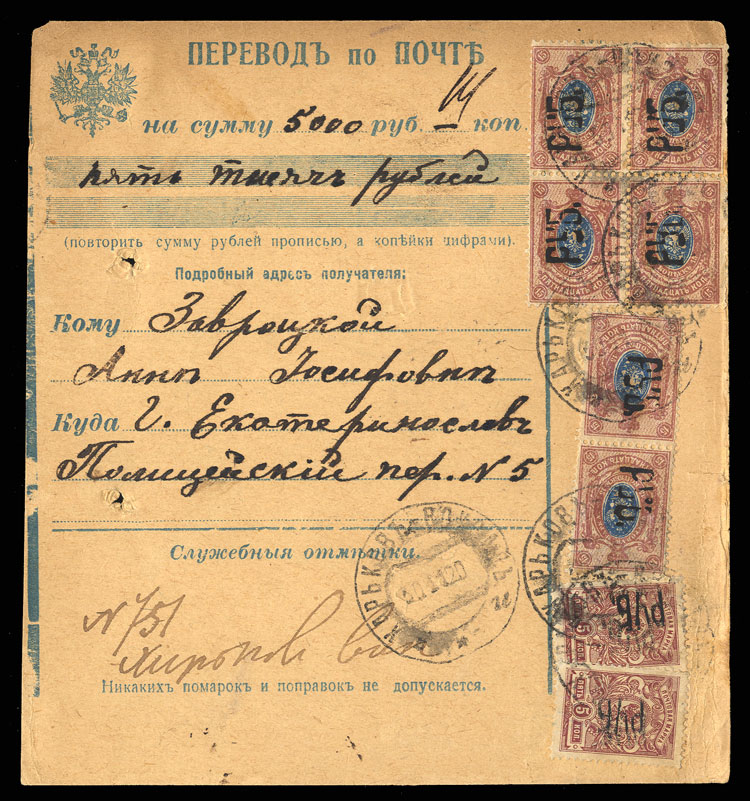 ПЕРЕВОДЪ по ПОЧТѢ
на сумму 5000 руб. коп.
пять тысячъ рублей
(повторить сумму рублей прописью, а копѣйки цифрами).
Подробный адресъ получателя:
Кому Завроцкой
Аннѣ Іосифовнѣ
Куда Г. Екатеринославъ
Полицейскій пер. N 5
Служебныя отмѣтки.
N 751
Никакихъ помарокъ и поправокъ не допускается.
ХАРЬКОВЪ-ВОКЗАЛЪ
РУБ.
РУБ.
РУБ.
РУБ.
РУБ.
РУБ.
РУБ
5 КОП 5
РУБ
5 КОП 5